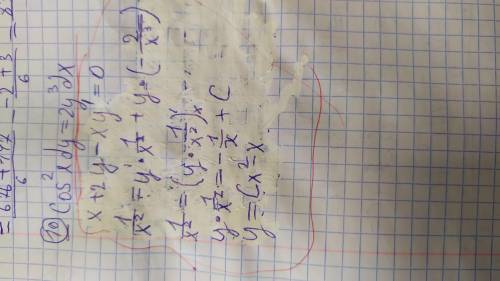 -2+3/6 = 8
10) cos²xdy = 2y³dx
x + 2y - xy' = 0
1/x² = y'·1/x² + y·(-2/x³)
1/x² = (y·1/x²)'ₓ
y·1/x² = -1/x + C
y = Cx² - x